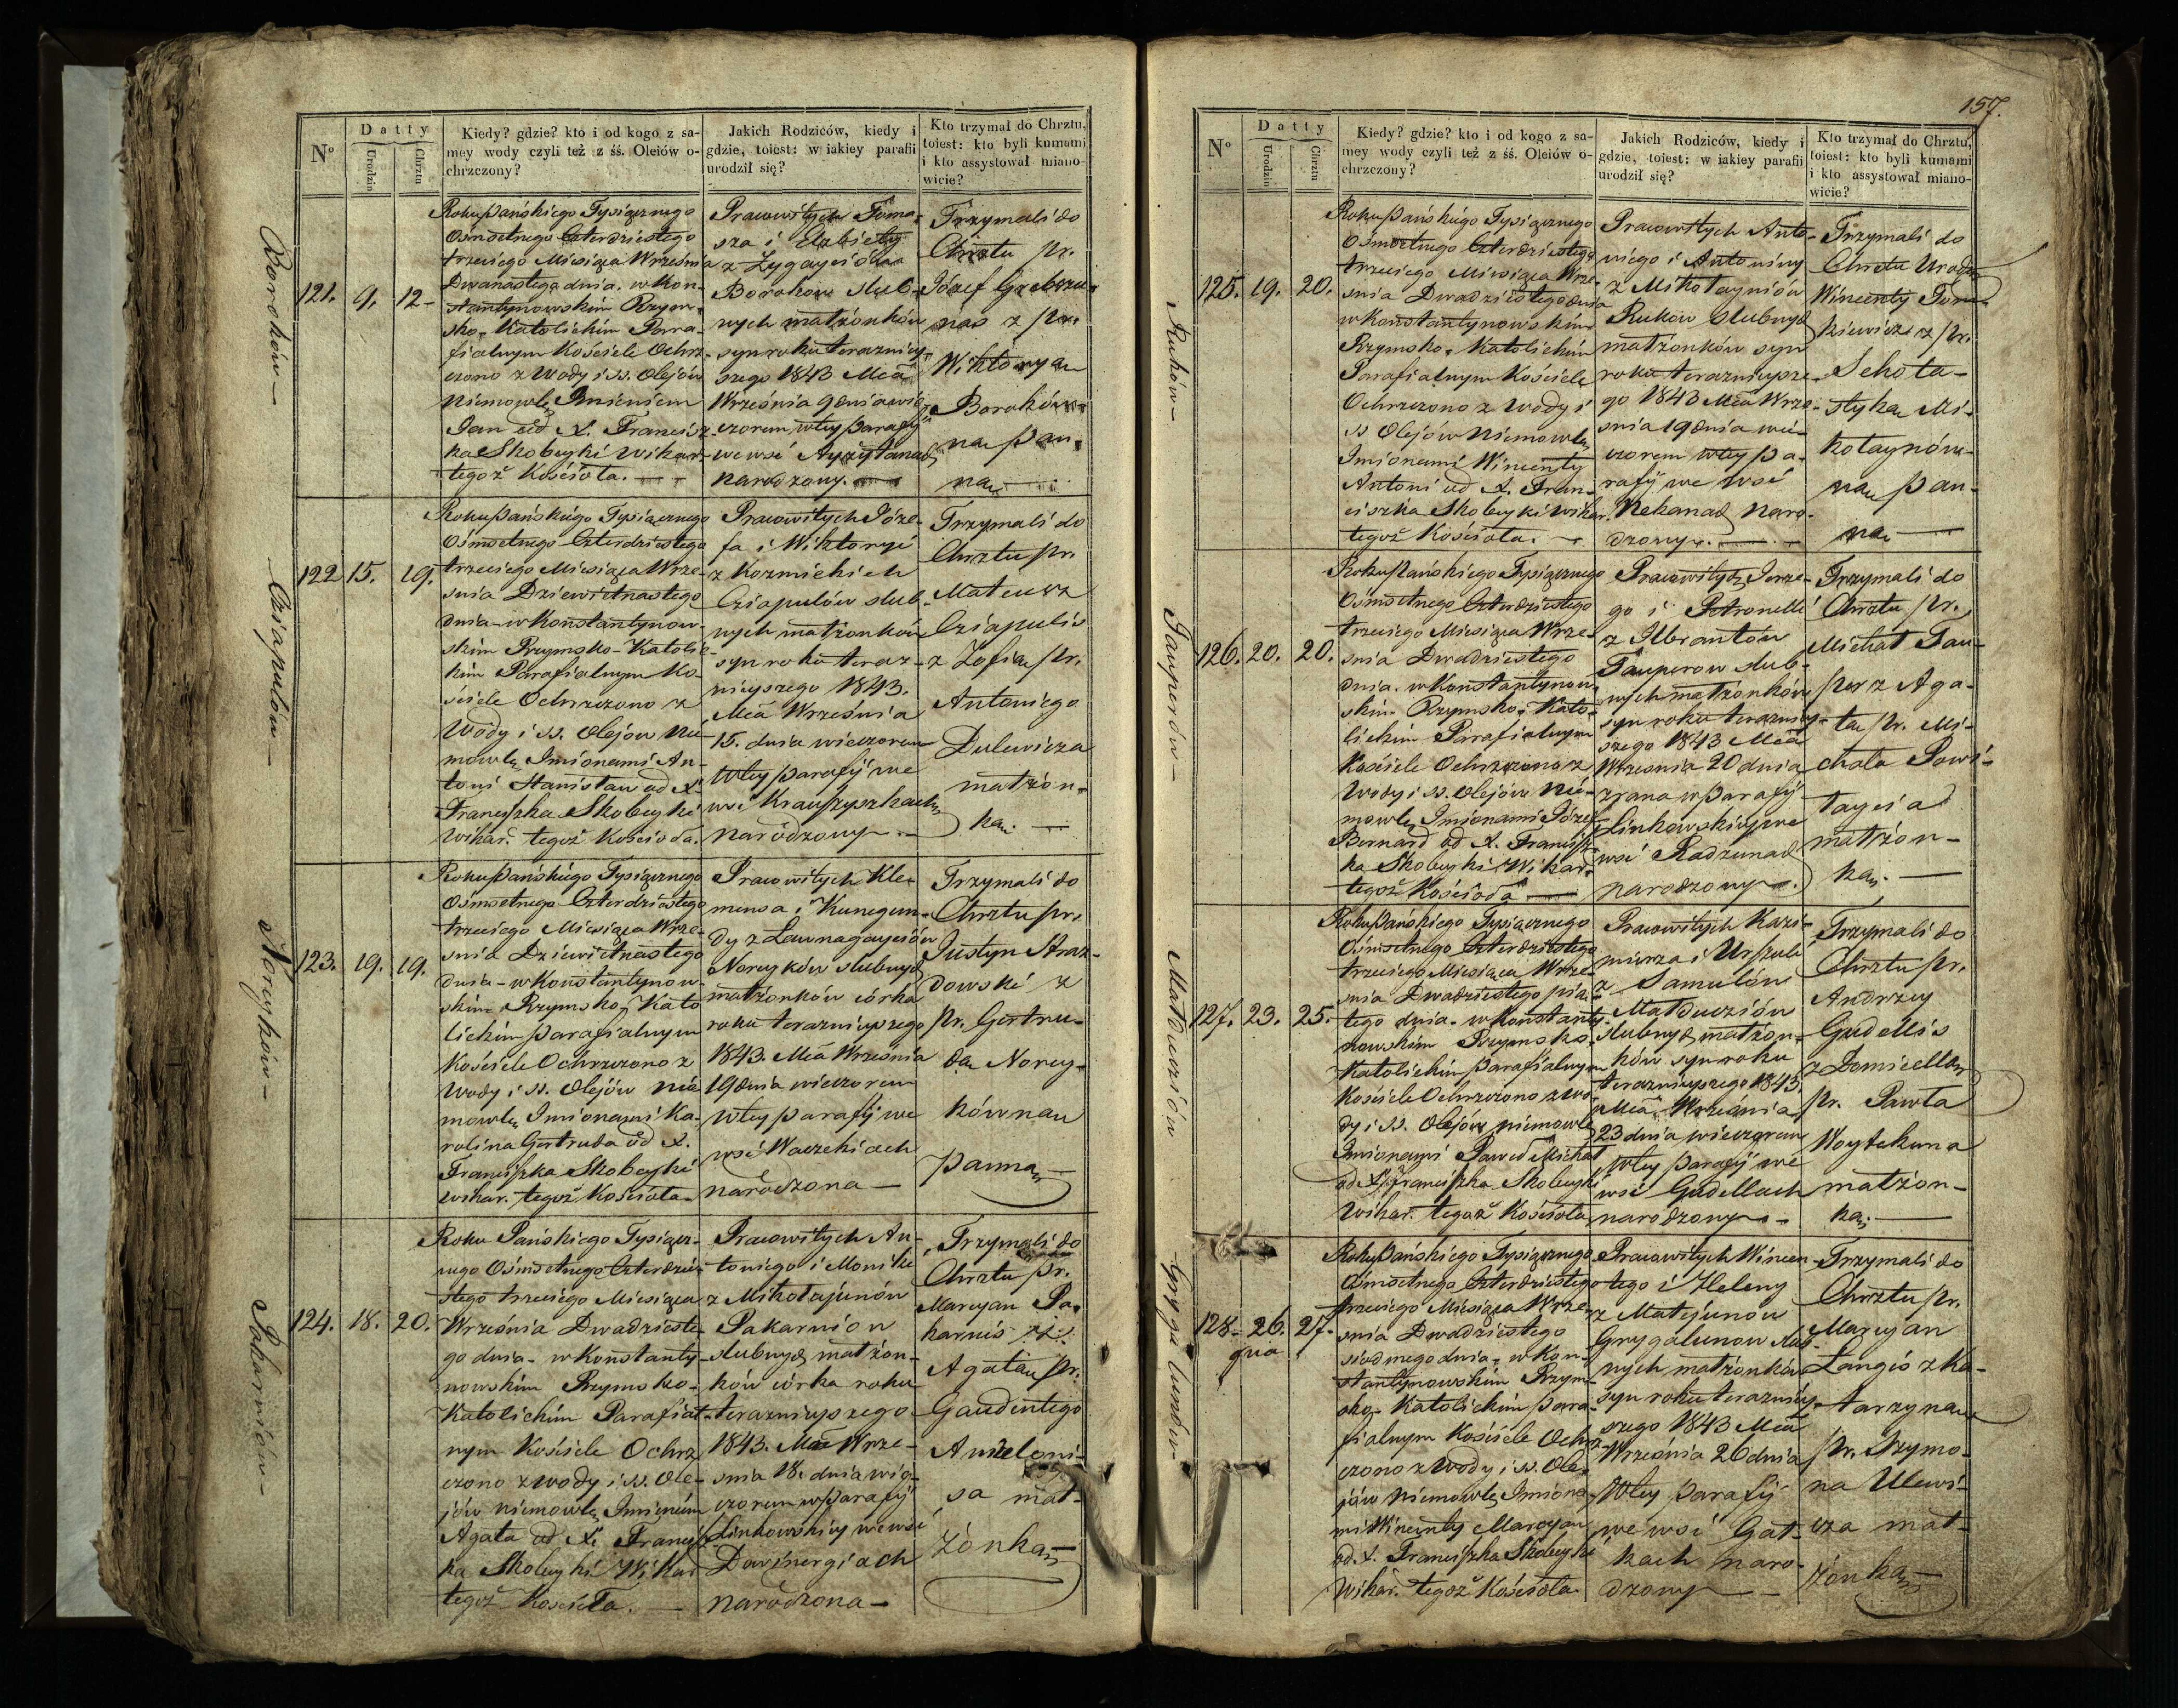 Nº
Datty
Urodzin
Chrztu
Kiedy? gdzie? kto i od kogo z sa-
mey wody czyli też z śś. Oleiów o-
chrzczony?
Jakich Rodziców, kiedy i
gdzie, toiest: w iakiey parafii
urodził się?
Kto trzymał do Chrztu,
toiest: kto byli kumami
i kto assystował miano-
wicie?
Boroków
121. 9. 12
Roku Pańskiego Tysiącznego
Ośmsetnego Czterdziestego
trzeciego Miesiąca Września
Dwanastego dnia. w Kon-
stantynowskim Rzym-
sko-Katolickim Para-
fialnym Kościele Ochrz-
czono z Wody i SS. Olejów
Niemowlę Imieniem
Jan od X. Francisz-
ka Skobeyki Wikar.
tegoż Kościoła.
Pracowitych Toma-
sza i Elżbiety
z Żygayciów
Boroków ślub-
nych małżonków
syn roku teraźniey-
szego 1843 Mca
Września 9 dnia wie-
czorem, w tey parafij
we wsi
narodzony.
Trzymali do
Chrztu pr.
Józef Grebzu-
nas z pr.
Wiktoryą
Boroków-
ną pan-
ną
Cziapulów
122 15. 19.
Roku Pańskiego Tysiącznego
Ośmsetnego Czterdziestego
trzeciego Miesiąca Wrze-
śnia Dziewiętnastego
dnia w Konstantynow-
skim Rzymsko-Katolic-
kim Parafialnym Ko-
ściele Ochrzczono z
Wody i SS. Olejów Nie-
mowlę Imionami An-
toni Stanisław od X.
Franciszka Skobeyki
Wikar. tegoż Kościoła.
Pracowitych Józe-
fa i Wiktoryi
z Kozmickich
Cziapulów ślub-
nych małżonków
syn roku teraź-
nieyszego 1843.
Mca Września
15. dnia wieczorem
w tey parafij we
wsi Krauszyszkach
narodzony.
Trzymali do
Chrztu pr.
Mateusz
Cziapulis
z Zofią pr.
Antoniego
Dulewicza
małżon-
ką.
Noreyków
123. 19. 19.
Roku Pańskiego Tysiącznego
Ośmsetnego Czterdziestego
trzeciego Miesiąca Wrze-
śnia Dziewiętnastego
dnia w Konstantynow-
skim Rzymsko Kato
lickim parafialnym
Kościele Ochrzczono z
Wody i SS. Olejów Nie
mowlę Imionami Ka-
rolina Gertruda od X.
Franciszka Skobeyki
Wikar. tegoż Kościoła
Pracowitych Kle-
mensa i Kunegun-
dy z Ławnagayciów
Noreyków ślubnych
małżonków córka
roku teraźnieyszego
1843. Mca Września
19 dnia wieczorem
w tey parafij we
wsi Waczekiach
narodzona
Trzymali do
Chrztu pr.
Justyn Straz-
dowski z
pr. Gertru-
dą Norey-
kówną
panną
Pakarniów
124. 18. 20.
Roku Pańskiego Tysiącz-
nego Ośmsetnego Czterdzie-
stego trzeciego Miesiąca
Września Dwadzieste-
go dnia w Konstanty-
nowskim Rzymsko-
Katolickim Parafial-
nym Kościele Ochrz
czono z wody i SS. Ole-
jów niemowlę Imieniem
Agata od X. Francisz-
ka Skobeyki Wikar.
tegoż Kościoła.
Pracowitych An-
toniego i Moniki
z Mikołajunów
Pakarniów
ślubnych małżon-
ków córka roku
teraźnieyszego
1843. Mca Wrze-
śnia 18. dnia wie-
czorem w Parafij
Linkowskiey we wsi
Dowinergiach
narodzona
Trzymali do
Chrztu pr.
Maryan Pa-
karnis z
Agatą pr.
Gaudentego
małżonką
157.
Nº
Datty
Urodzin
Chrztu
Kiedy? gdzie? kto i od kogo z sa-
mey wody czyli też z śś. Oleiów o-
chrzczony?
Jakich Rodziców, kiedy i
gdzie, toiest: w iakiey parafii
urodził się?
Kto trzymał do Chrztu,
toiest: kto byli kumami
i kto assystował miano-
wicie?
Ruków
125. 19. 20.
Roku Pańskiego Tysiącznego
Ośmsetnego Czterdziestego
trzeciego Miesiąca Wrze-
śnia Dwadziestego dnia
w Konstantynowskim
Rzymsko-Katolickim
Parafialnym Kościele
Ochrzczono z Wody i
SS Olejów Niemowlę
Imionami Wincenty
Antoni od X. Fran-
ciszka Skobeyki Wikar.
tegoż Kościoła.
Pracowitych Anto-
niego i Antoniny
z Mikołayniów
Ruków ślubnych
małżonków syn
roku teraźnieysze-
go 1843 Mca Wrze-
śnia 19 dnia wie-
czorem w tey pa-
rafij we wsi
narodzony.
Trzymali do
Chrztu Urodz.
Wincenty Tom-
kiewicz z pr.
Schola-
styką Mi-
kołaynów-
ną pan-
ną
Tauperów
126. 20. 20.
Roku Pańskiego Tysiącznego
Ośmsetnego Czterdziestego
trzeciego Miesiąca Wrze-
śnia Dwadziestego
dnia. w Konstantynow-
skim Rzymsko-Kato-
lickim Parafialnym
Kościele Ochrzczono z
Wody i SS. Olejów Nie-
mowlę Imionami Józef
Bernard od X. Francisz-
ka Skobeyki Wikar.
tegoż Kościoła
Pracowitych Jerze-
go i Petronelli
z Ilbrantów
Tauperów ślub-
nych małżonków
syn roku teraźniey-
szego 1843 Mca
Września 20 dnia
z rana w Parafij
Linkowskiey we
wsi Radzunach
narodzony.
Trzymali do
Chrztu pr.
Michał Tau-
per z Aga-
tą pr. Mi-
chała Powi-
łaycia
małżon-
ką.
Matduciów
127. 23. 25.
Roku Pańskiego Tysiącznego
Ośmsetnego Czterdziestego
trzeciego Miesiąca Wrze-
śnia Dwadziestego pią-
tego dnia. w Konstanty-
nowskim Rzymsko-
Katolickim parafialnym
Kościele Ochrzczono z wo-
dy i SS. Olejów niemowlę
Imionami Paweł Michał
od X. Franciszka Skobeyki
Wikar. tegoż Kościoła
Pracowitych Kazi-
mierza i Urszuli
z Samulów
Matduciów
ślubnych małżon-
ków syn roku
teraźnieyszego 1843.
Mca Września
23 dnia wieczorem
w tey Parafij we
wsi Gudellach
narodzony
Trzymali do
Chrztu pr.
Andrzey
Gudellis
z Domicellą
pr. Pawła
Woytekuna
małżon-
ką.
Grygalunów
128. 26. 27.
gua
Roku Pańskiego Tysiącznego
Ośmsetnego Czterdziestego
trzeciego Miesiąca Wrze-
śnia Dwadziestego
siódmego dnia w Kon-
stantynowskim Rzym-
sko-Katolickim para-
fialnym Kościele Ochrz-
czono z Wody i SS. Ole-
jów Niemowlę Imiona-
mi Wincenty Maryan
od X. Franciszka Skobeyki
Wikar. tegoż Kościoła
Pracowitych Wincen-
tego i Heleny
z Matejunów
Grygalunów ślub-
nych małżonków
syn roku teraźniey-
szego 1843 Mca
Września 26 dnia
w tey Parafij
we wsi Gat-
kach naro-
dzony
Trzymali do
Chrztu pr.
Maryan
Langis z Ka-
tarzyną
pr. Szymo-
na Ulewi-
cza mał-
żonką